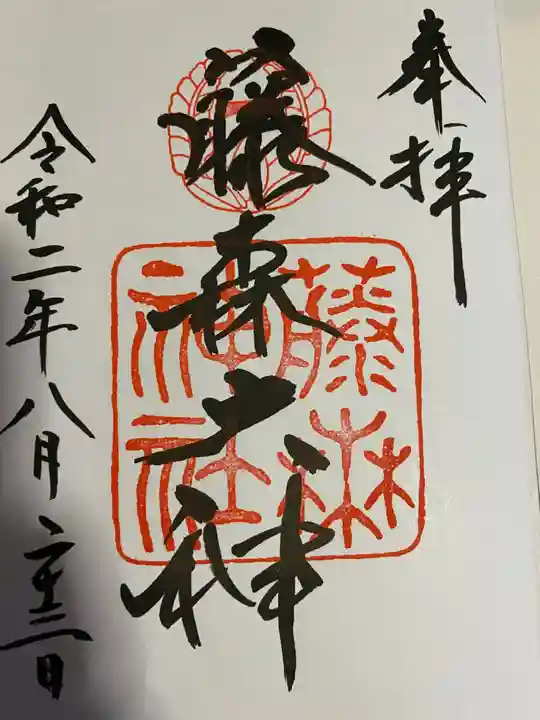 奉拝
藤森大神
藤森神社
令和二年八月二十三日